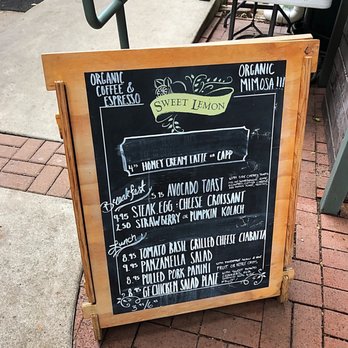 ORGANIC
COFFEE &
ESPRESSO
ORGANIC
MIMOSA !!!
SWEET LEMON
HONEY CREAM LATTE OR CAPP
Breakfast
5.95 AVOCADO TOAST
9.95 STEAK EGG & CHEESE CROISSANT
2.50 STRAWBERRY OR PUMPKIN KOLACH
Lunch
8.95 TOMATO BASIL GRILLED CHEESE CIABATTA
9.95 PANZANELLA SALAD
8.95 PULLED PORK PANINI
FRUIT OR KETTLE CHIPS
8.95 GF CHICKEN SALAD PLATE